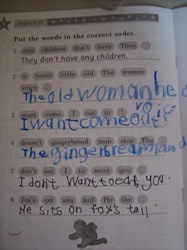 Put the words in the correct order.
1 any children don't have They .
They don't have any children.
2 a hears little old The woman
voice .
The old woman hea
vo
3 want come I out to !
I want come out!
4 doesn't gingerbread man stop The .
The gingerbread man d
5 don't out I to want you .
I don't want to eat you.
6 fox's on sits tail He the .
He sits on fox's tail.